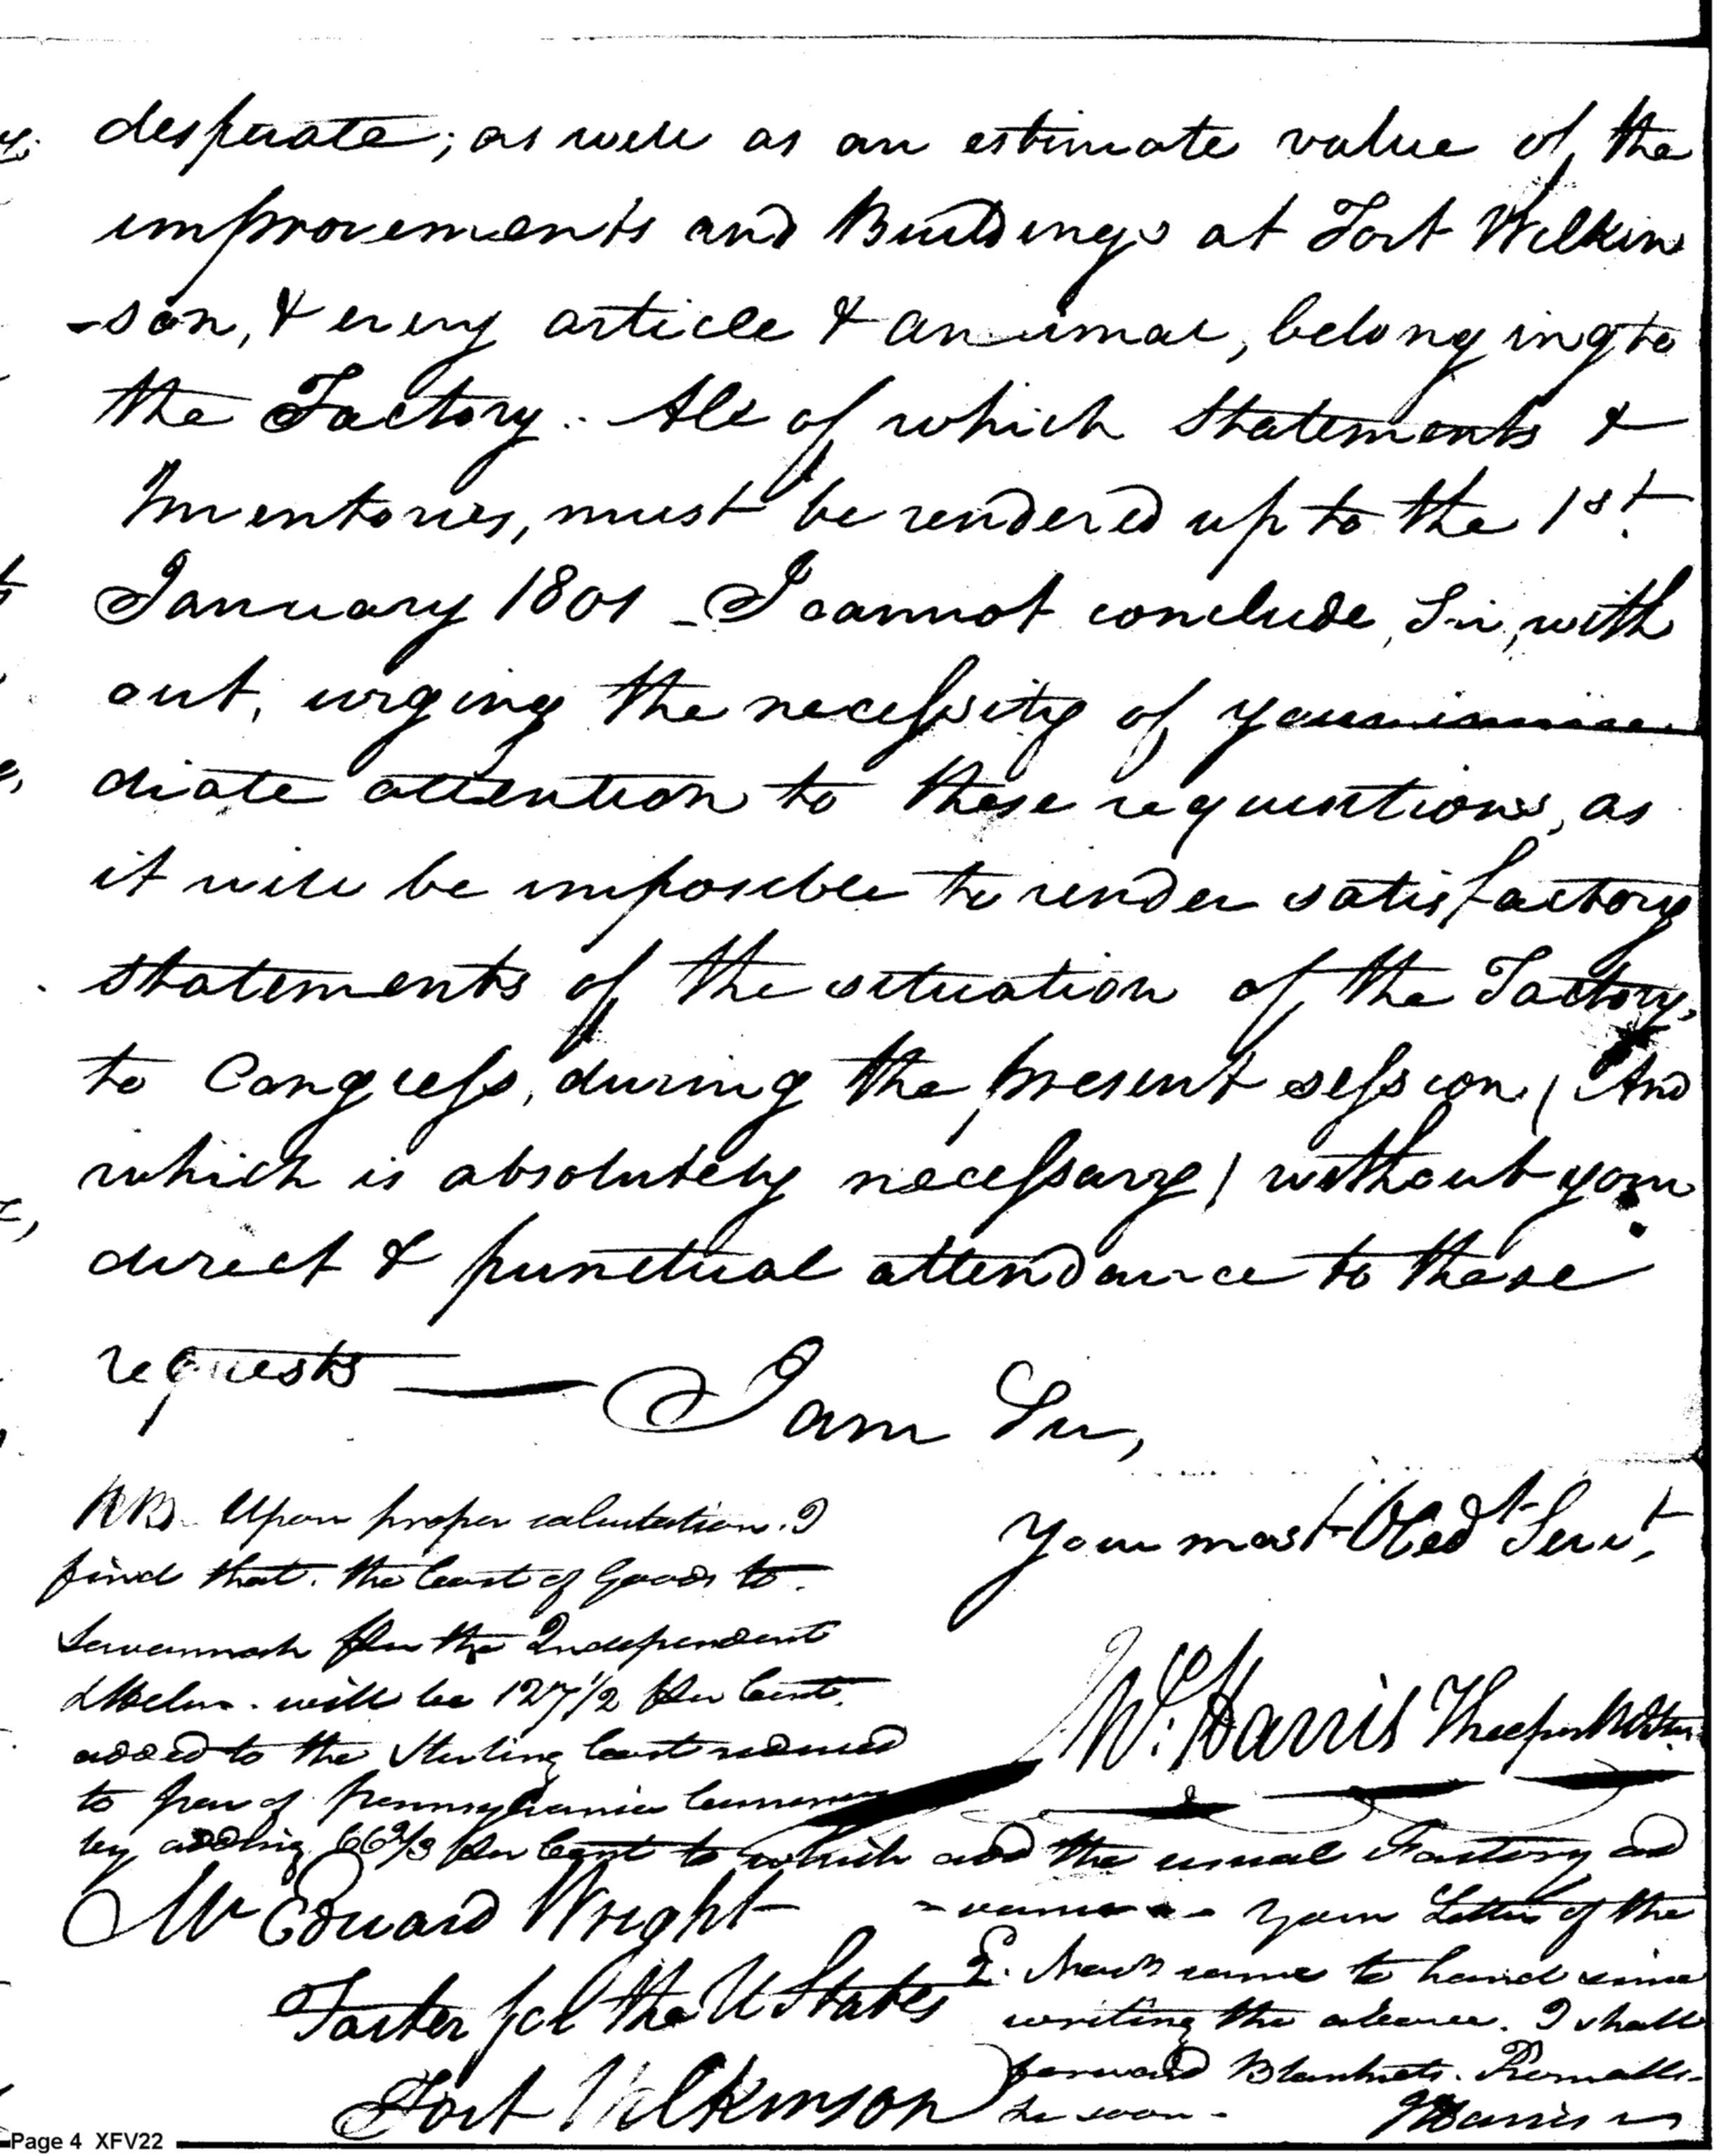 desperate; as well as an estimate value of the
improvements and Buildings at Fort Wilkin
-son, & every article & animal, belonging to
the Factory. All of which Statements &
Inventories, must be rendered up to the 1st.
January 1801 - I cannot conclude, Sir, with
out, urging the necessity of your imme
diate attention to these requisitions, as
it will be imposible to render satisfactory
statements of the situation of the Factory,
to Congress, during the present session, ( And
which is absolutely necessary ) without your
direct & punctual attendance to these
requests
I am Sir,
Your most Obed.t Serv.t
NB. Upon proper calculation. I
find that. the Cost of Goods to.
Savannah per the Independent
will be 127 1/2 per Cent.
added to the Sterling Cost reduced
to par of Pennsylvania Currency
by adding 66 2/3 per Cent to which add the usual Factory ad
W. Harris
Mr Edward Wright
Factor for the U States
Fort Wilkinson
your Letter of the
2. came to hand since
writing the above. I shall
forward Blankets.
soon -
Harris
Page 4 XFV22